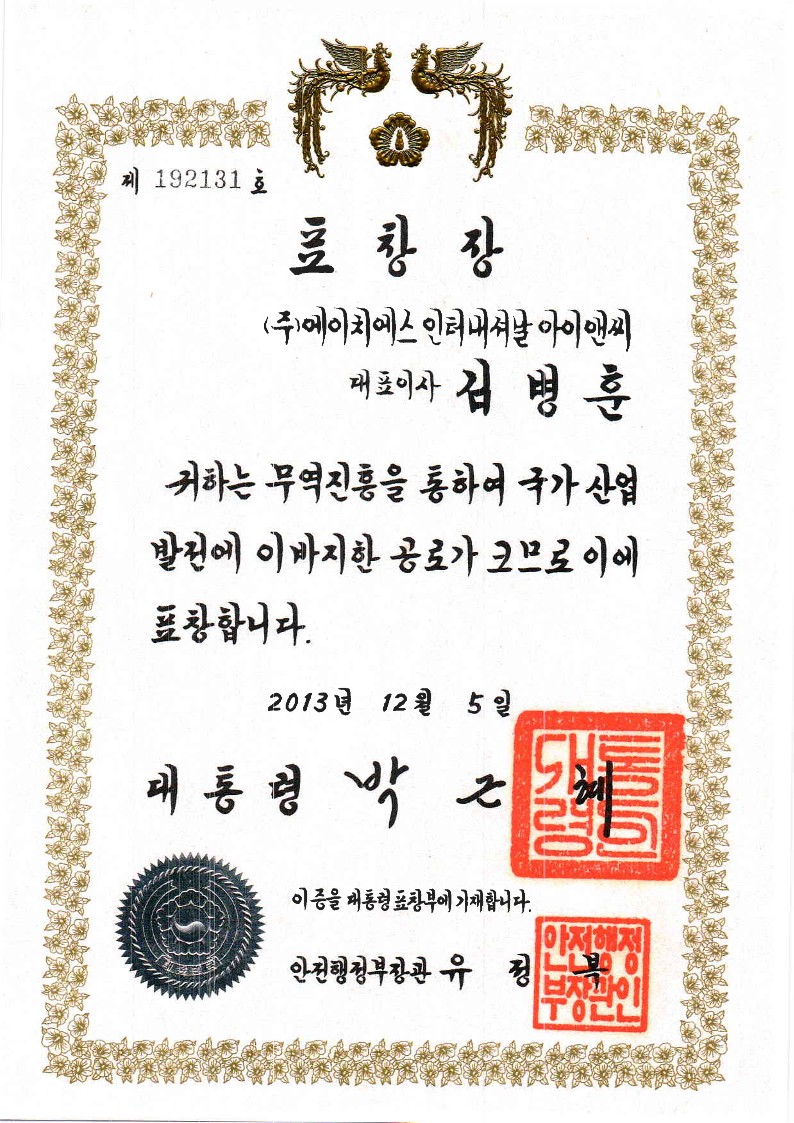 제 192131 호
표 창 장
(주)에이치에스 인터내셔날 아이앤씨
대표이사 김 병 훈
귀하는 무역진흥을 통하여 국가 산업
발전에 이바지한 공로가 크므로 이에
표창합니다.
2013년 12월 5일
대 통 령 박 근 혜
대통령의인
이 증을 대통령표창부에 기재합니다.
안전행정부장관 유 정 복
안전행정
부장관인